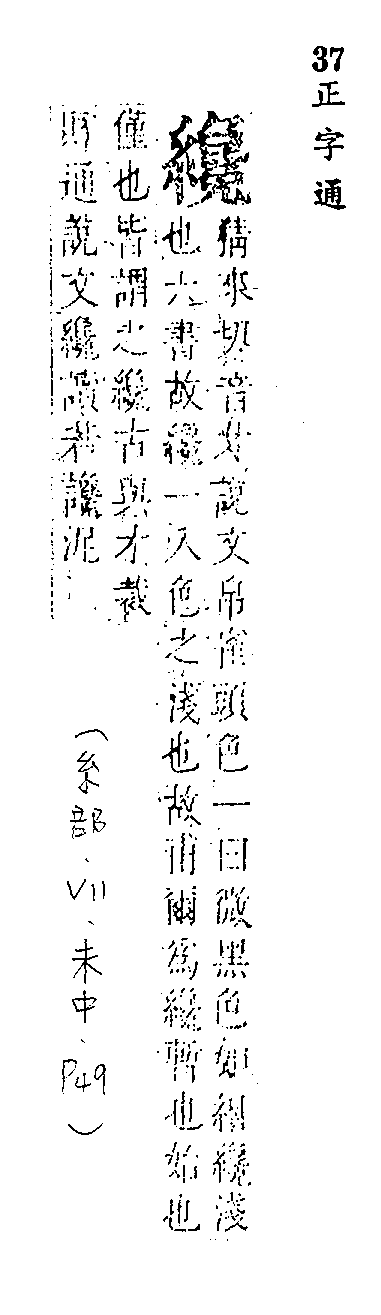 37正字通
纔猜來切音才說文帛雀頭色一曰微黑色如紺纔淺
也六書故纔一入色之淺也故甫爾爲纔暫也始也
僅也皆謂之纔古與才裁
財通說文纔讀若讒泥
（糸部、VII、未中、P49）